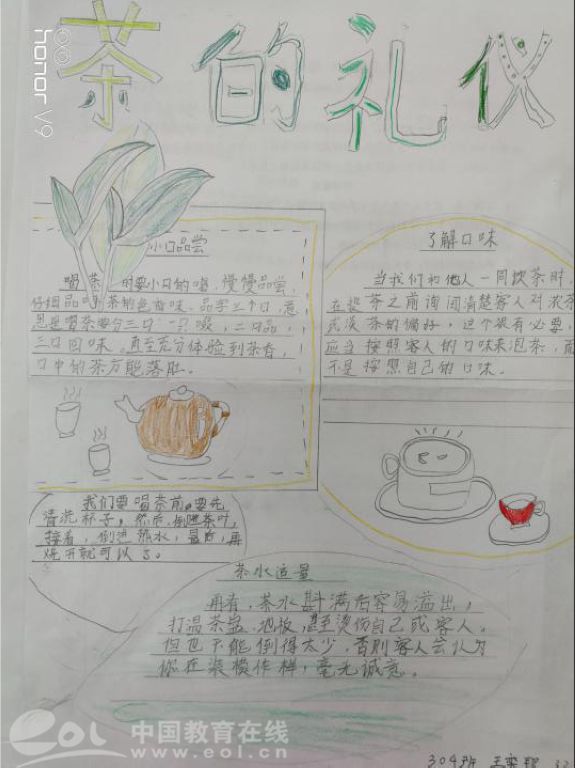 honor V9
茶的礼仪
小口品尝
喝茶时要小口的喝，慢慢品尝，
仔细品味茶的色香味。品字三个口，意
思是喝茶要分三口一口啜，二口品，
三口回味。直至充分体验到茶香，
口中的茶方能落肚。
了解口味
当我们和他人一同饮茶时，
在投茶之前询问清楚客人对浓茶
或淡茶的偏好，这个很有必要，
应当按照客人的口味来泡茶，而
不是按照自己的口味。
我们要喝茶前。要先
清洗杯子。然后，倒进茶叶，
接着，倒进热水，最后，再
烧开就可以了。
茶水适量
再有，茶水斟满后容易溢出，
打湿茶盘、地板，甚至烫伤自己或客人。
但也不能倒得太少，否则客人会认为
你在装模作样，毫无诚意。
eol 中国教育在线
www.eol.cn
304班 王